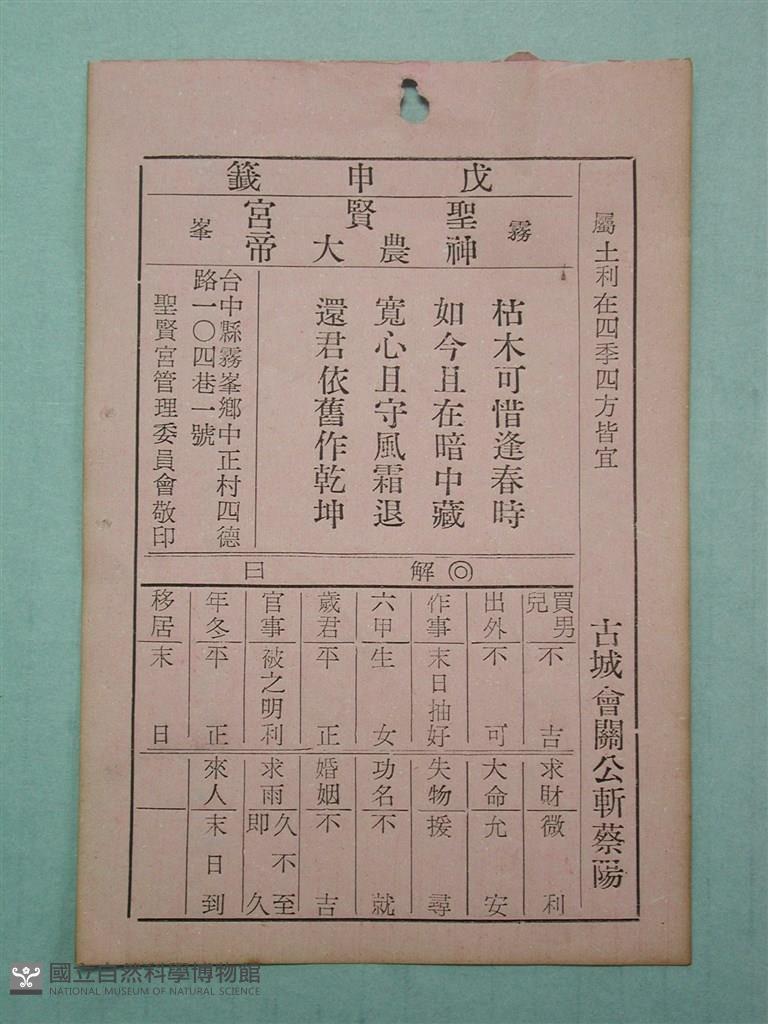 戊申籤
霧聖賢宮峯
神農大帝
屬土利在四季四方皆宜
古城會關公斬蔡陽
枯木可惜逢春時
如今且在暗中藏
寬心且守風霜退
還君依舊作乾坤
台中縣霧峯鄉中正村四德
路一〇四巷一號
聖賢宮管理委員會敬印
◎解曰
買男兒 不吉
出外 不可
作事 末日抽好
六甲 生女
歲君 平正
官事 被之明利
年冬 平正
移居 末日
求財 微利
大命 允安
失物 援尋
功名 不就
婚姻 不吉
求雨 久不至即久
來人 末日到
國立自然科學博物館
NATIONAL MUSEUM OF NATURAL SCIENCE